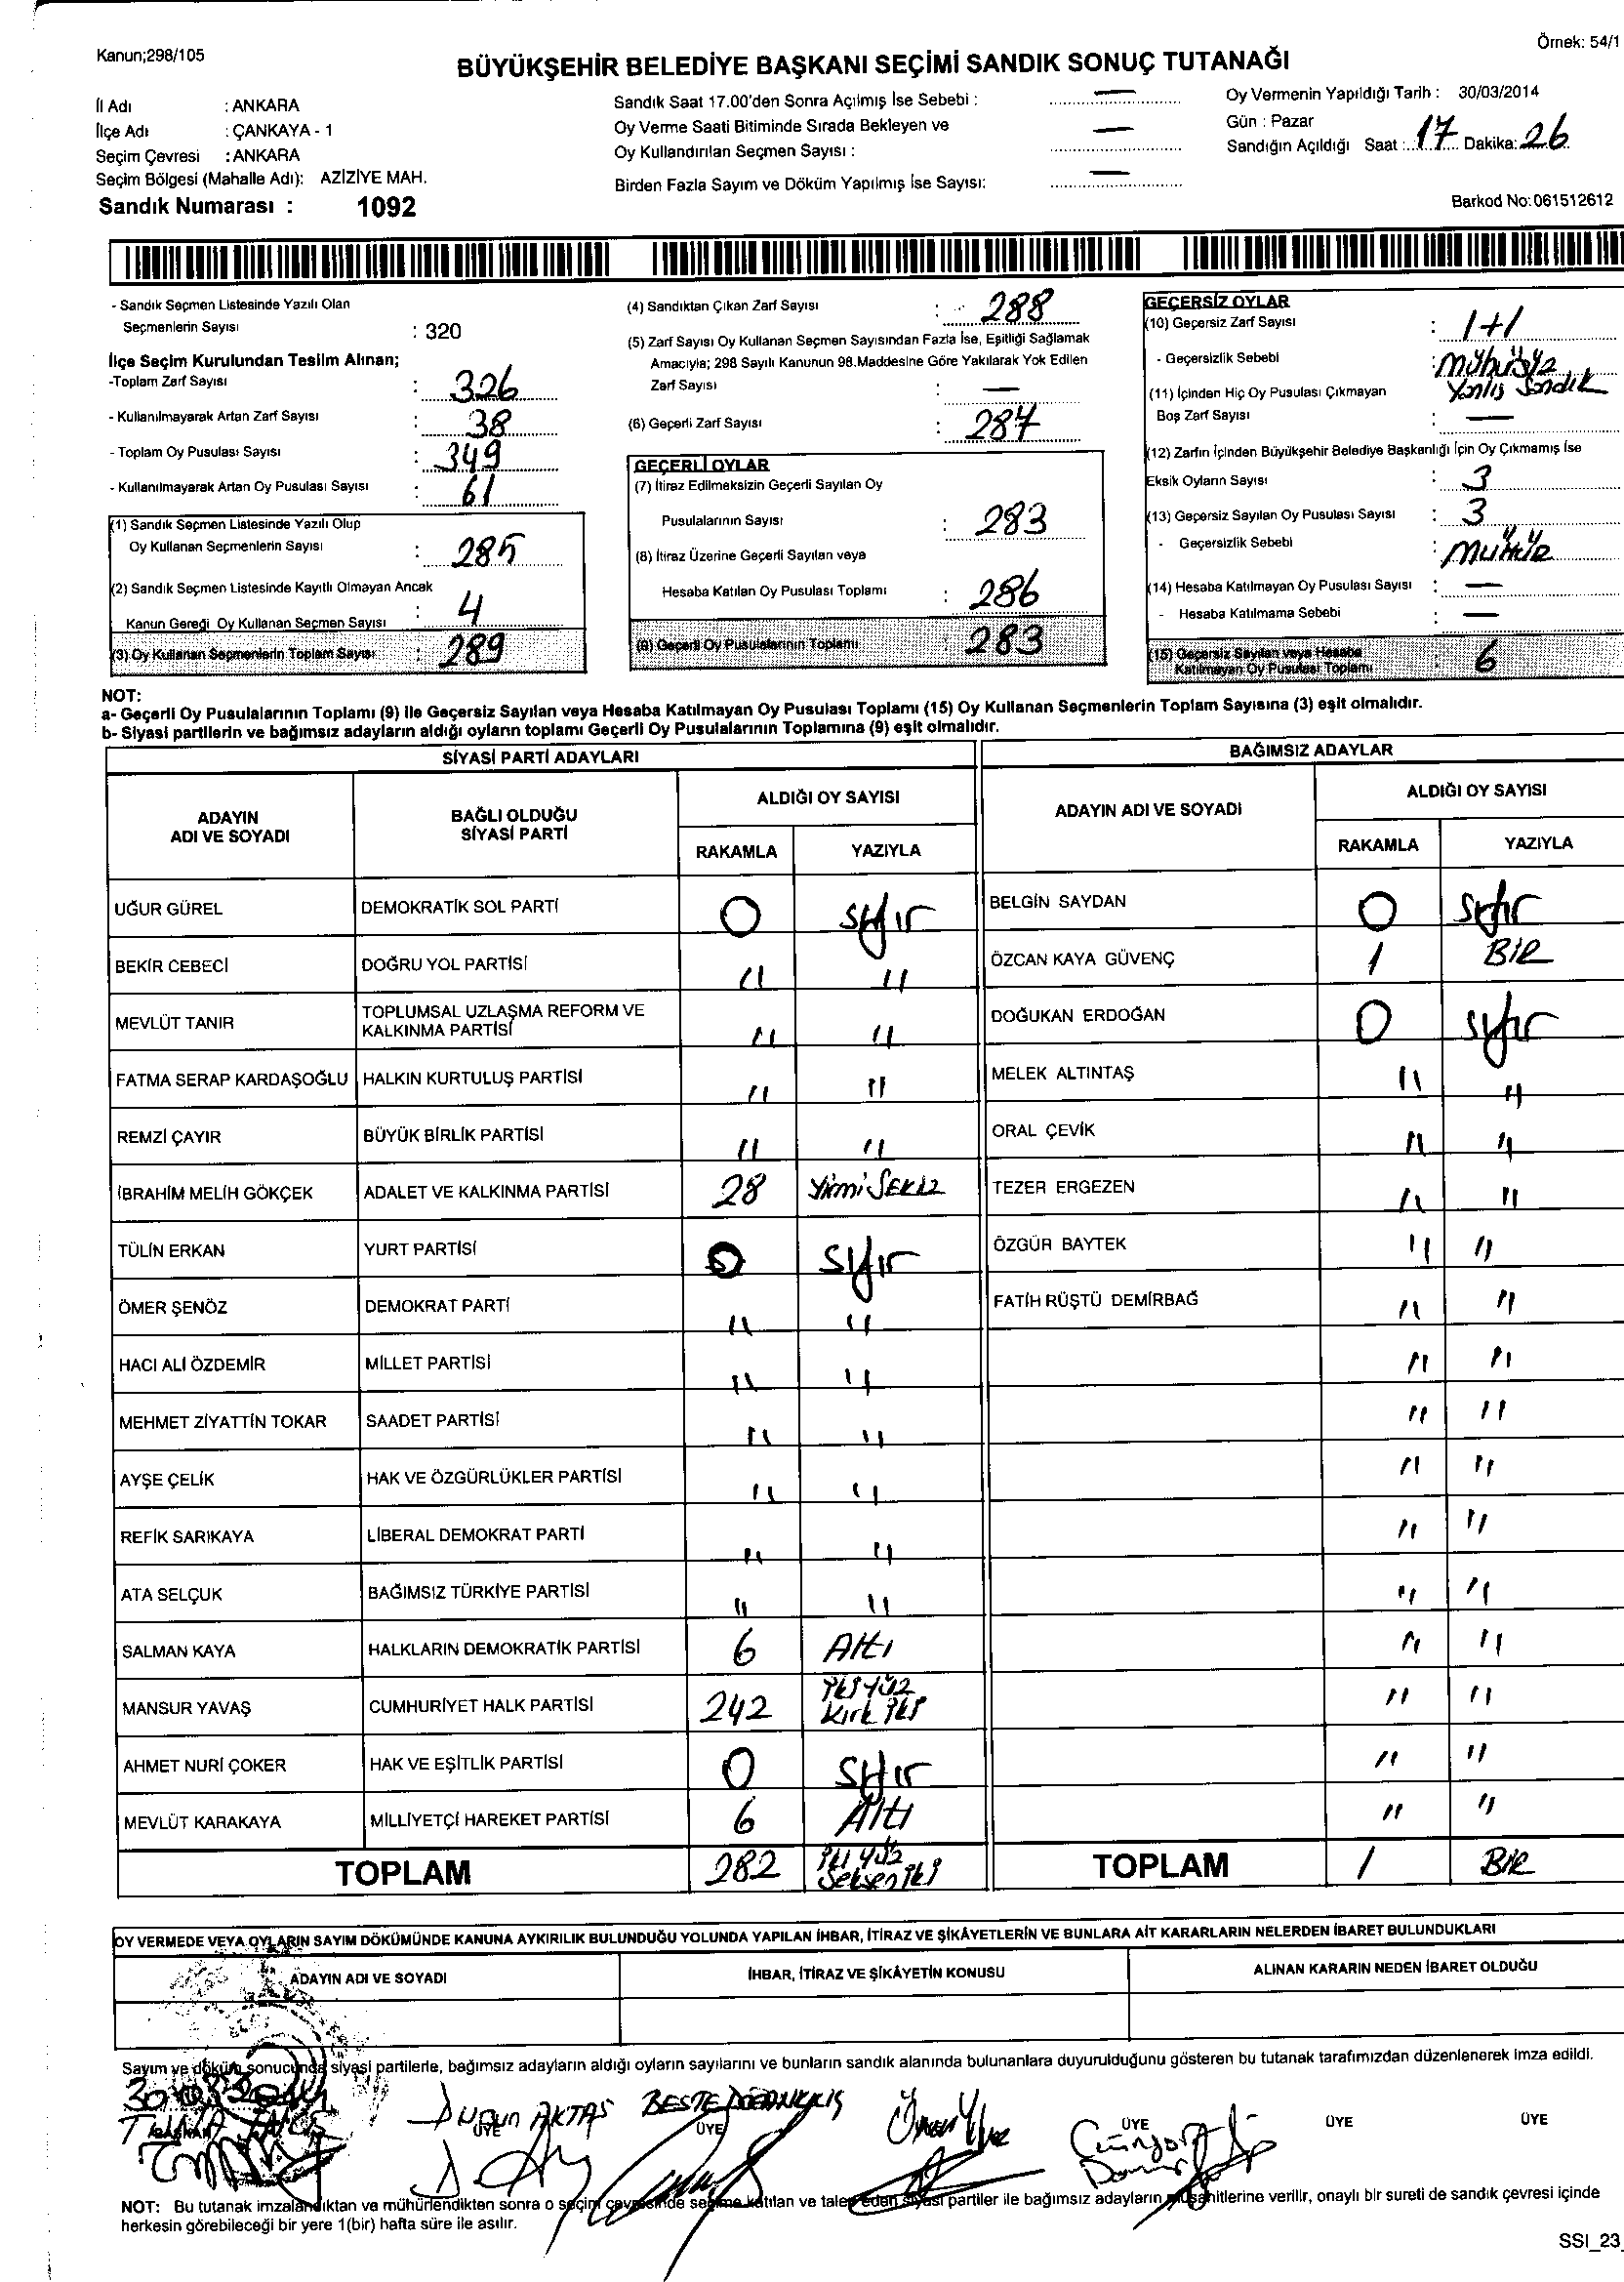 Kanun;298/105
Örnek: 54/1
BÜYÜKŞEHİR BELEDİYE BAŞKANI SEÇİMİ SANDIK SONUÇ TUTANAĞI
İl Adı : ANKARA
İlçe Adı : ÇANKAYA - 1
Seçim Çevresi : ANKARA
Seçim Bölgesi (Mahalle Adı): AZİZİYE MAH.
Sandık Numarası : 1092
Sandık Saat 17.00'den Sonra Açılmış İse Sebebi : —
Oy Verme Saati Bitiminde Sırada Bekleyen ve
Oy Kullandırılan Seçmen Sayısı : —
Birden Fazla Sayım ve Döküm Yapılmış İse Sayısı: —
Oy Vermenin Yapıldığı Tarih : 30/03/2014
Gün : Pazar
Sandığın Açıldığı Saat : 17 Dakika: 26
Barkod No: 061512612
- Sandık Seçmen Listesinde Yazılı Olan
Seçmenlerin Sayısı : 320
İlçe Seçim Kurulundan Teslim Alınan;
-Toplam Zarf Sayısı : 326
- Kullanılmayarak Artan Zarf Sayısı : 38
- Toplam Oy Pusulası Sayısı : 349
- Kullanılmayarak Artan Oy Pusulası Sayısı : 61
(1) Sandık Seçmen Listesinde Yazılı Olup
Oy Kullanan Seçmenlerin Sayısı : 285
(2) Sandık Seçmen Listesinde Kayıtlı Olmayan Ancak
Kanun Gereği Oy Kullanan Seçmen Sayısı : 4
(3) Oy Kullanan Seçmenlerin Toplam Sayısı : 289
(4) Sandıktan Çıkan Zarf Sayısı : 288
(5) Zarf Sayısı Oy Kullanan Seçmen Sayısından Fazla İse, Eşitliği Sağlamak
Amacıyla; 298 Sayılı Kanunun 98.Maddesine Göre Yakılarak Yok Edilen
Zarf Sayısı : —
(6) Geçerli Zarf Sayısı : 287
GEÇERLİ OYLAR
(7) İtiraz Edilmeksizin Geçerli Sayılan Oy
Pusulalarının Sayısı : 283
(8) İtiraz Üzerine Geçerli Sayılan veya
Hesaba Katılan Oy Pusulası Toplamı : 286
(9) Geçerli Oy Pusulalarının Toplamı : 283
GEÇERSİZ OYLAR
(10) Geçersiz Zarf Sayısı : 1+1
- Geçersizlik Sebebi : mühürsüz
Yanlış Sandık
(11) İçinden Hiç Oy Pusulası Çıkmayan
Boş Zarf Sayısı : —
(12) Zarfın İçinden Büyükşehir Belediye Başkanlığı İçin Oy Çıkmamış İse
Eksik Oyların Sayısı : 3
(13) Geçersiz Sayılan Oy Pusulası Sayısı : 3
- Geçersizlik Sebebi : MÜHÜR
(14) Hesaba Katılmayan Oy Pusulası Sayısı : —
- Hesaba Katılmama Sebebi : —
(15) Geçersiz Sayılan veya Hesaba
Katılmayan Oy Pusulası Toplamı : 6
NOT:
a- Geçerli Oy Pusulalarının Toplamı (9) ile Geçersiz Sayılan veya Hesaba Katılmayan Oy Pusulası Toplamı (15) Oy Kullanan Seçmenlerin Toplam Sayısına (3) eşit olmalıdır.
b- Siyasi partilerin ve bağımsız adayların aldığı oyların toplamı Geçerli Oy Pusulalarının Toplamına (9) eşit olmalıdır.
SİYASİ PARTİ ADAYLARI
ADAYIN ADI VE SOYADI BAĞLI OLDUĞU SİYASİ PARTİ ALDIĞI OY SAYISI
RAKAMLA YAZIYLA
UĞUR GÜREL DEMOKRATİK SOL PARTİ 0 sıfır
BEKİR CEBECİ DOĞRU YOL PARTİSİ " "
MEVLÜT TANIR TOPLUMSAL UZLAŞMA REFORM VE KALKINMA PARTİSİ " "
FATMA SERAP KARDAŞOĞLU HALKIN KURTULUŞ PARTİSİ " "
REMZİ ÇAYIR BÜYÜK BİRLİK PARTİSİ " "
İBRAHİM MELİH GÖKÇEK ADALET VE KALKINMA PARTİSİ 28 Yirmi Sekiz
TÜLİN ERKAN YURT PARTİSİ 0 sıfır
ÖMER ŞENÖZ DEMOKRAT PARTİ " "
HACI ALİ ÖZDEMİR MİLLET PARTİSİ " "
MEHMET ZİYATTİN TOKAR SAADET PARTİSİ " "
AYŞE ÇELİK HAK VE ÖZGÜRLÜKLER PARTİSİ " "
REFİK SARIKAYA LİBERAL DEMOKRAT PARTİ " "
ATA SELÇUK BAĞIMSIZ TÜRKİYE PARTİSİ " "
SALMAN KAYA HALKLARIN DEMOKRATİK PARTİSİ 6 Altı
MANSUR YAVAŞ CUMHURİYET HALK PARTİSİ 242 İki yüz Kırk İki
AHMET NURİ ÇOKER HAK VE EŞİTLİK PARTİSİ 0 sıfır
MEVLÜT KARAKAYA MİLLİYETÇİ HAREKET PARTİSİ 6 Altı
TOPLAM 282 İki yüz Seksen İki
BAĞIMSIZ ADAYLAR
ADAYIN ADI VE SOYADI ALDIĞI OY SAYISI
RAKAMLA YAZIYLA
BELGİN SAYDAN 0 sıfır
ÖZCAN KAYA GÜVENÇ 1 BİR
DOĞUKAN ERDOĞAN 0 sıfır
MELEK ALTINTAŞ " "
ORAL ÇEVİK " "
TEZER ERGEZEN " "
ÖZGÜR BAYTEK " "
FATİH RÜŞTÜ DEMİRBAĞ " "
" "
" "
" "
" "
" "
" "
" "
" "
" "
TOPLAM 1 BİR
OY VERMEDE VEYA OYLARIN SAYIM DÖKÜMÜNDE KANUNA AYKIRILIK BULUNDUĞU YOLUNDA YAPILAN İHBAR, İTİRAZ VE ŞİKÂYETLERİN VE BUNLARA AİT KARARLARIN NELERDEN İBARET BULUNDUKLARI
ADAYIN ADI VE SOYADI İHBAR, İTİRAZ VE ŞİKÂYETİN KONUSU ALINAN KARARIN NEDEN İBARET OLDUĞU
Sayım ve döküm sonucunda siyasi partilerle, bağımsız adayların aldığı oyların sayılarını ve bunların sandık alanında bulunanlara duyurulduğunu gösteren bu tutanak tarafımızdan düzenlenerek imza edildi.
AKTAŞ BESTE
BAŞKAN ÜYE ÜYE ÜYE ÜYE ÜYE
NOT: Bu tutanak imzalandıktan ve mühürlendikten sonra o seçim çevresinde seçime katılan ve talep eden siyasi partiler ile bağımsız adayların müşahitlerine verilir, onaylı bir sureti de sandık çevresi içinde
herkesin görebileceği bir yere 1(bir) hafta süre ile asılır.
SSI_23_